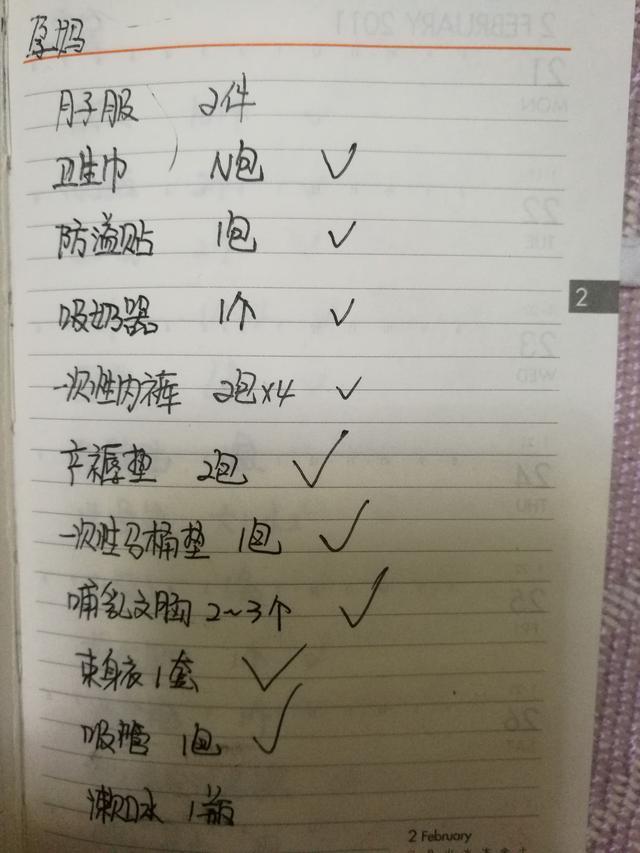 月子服 2件
卫生巾 N包 ✓
防溢贴 1包 ✓
吸奶器 1个 ✓
一次性内裤 2包×4 ✓
产褥垫 2包 ✓
一次性马桶垫 1包 ✓
哺乳文胸 2~3个 ✓
束身衣 1套 ✓
吸管 1包 ✓
漱口水 1瓶
2
2 February
2 FEBRUARY 2011
21
MON
22
TUE
23
WED
24
THU
25
FRI
26
SAT